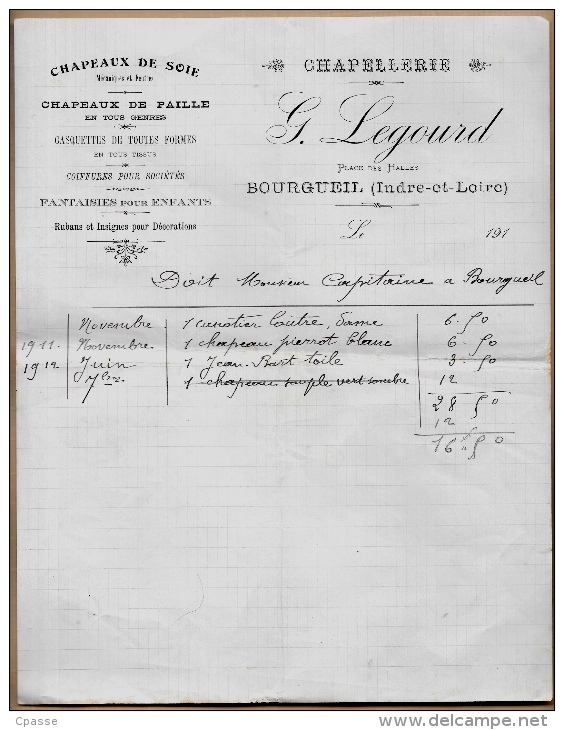 CHAPEAUX DE SOIE
Mécaniques et Feutre
CHAPEAUX DE PAILLE
EN TOUS GENRES
CASQUETTES DE TOUTES FORMES
EN TOUS TISSUS
COIFFURES POUR SOCIÉTÉS
FANTAISIES POUR ENFANTS
Rubans et Insignes pour Décorations
CHAPELLERIE
G. Legourd
PLACE DES HALLES
BOURGUEIL (Indre-et-Loire)
Le 191
Doit Monsieur Capitaine a Bourgueil
Novembre 1 loutre, Dame 6.50
1911. Novembre 1 chapeau pierrot blanc 6.50
1912 Juin 1 Jean-Bart toile 3.50
7bre 1 chapeau souple vert sombre 12
28 50
12
16f50
Cpasse
delcampe.net